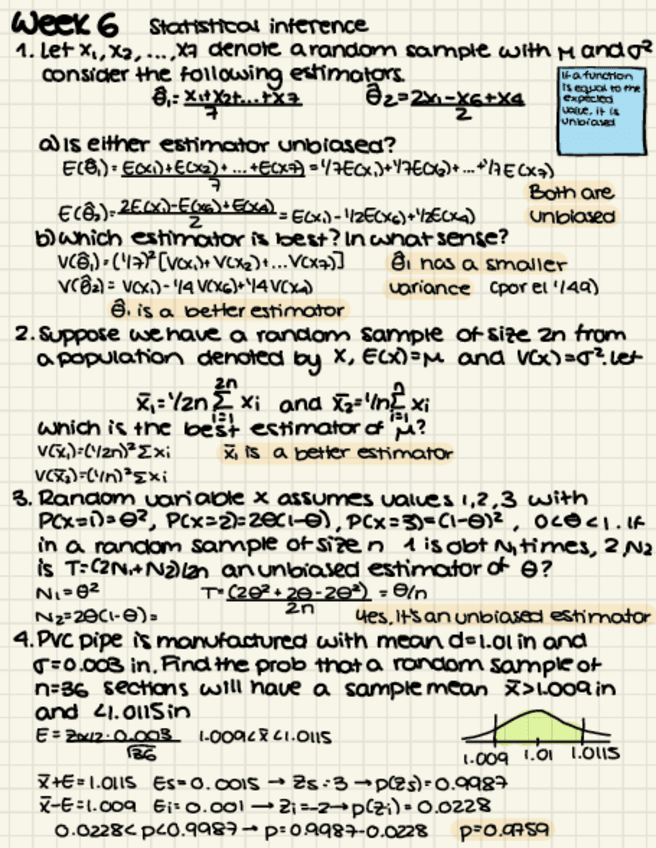 Week 6 Statistical inference
1. Let X₁, X₂, ..., X7 denote a random sample with μ and σ²
consider the following estimators.
θ̂₁ = X₁+X₂+...+X7/7 θ̂₂ = 2X₁-X6+X4/2
If a function
is equal to the
expected
value, it is
unbiased
a) Is either estimator unbiased?
E(θ̂₁) = E(X₁)+E(X₂)+...+E(X7)/7 = 1/7E(X₁)+1/7E(X₂)+...+1/7E(X7)
Both are
E(θ̂₂) = 2E(X₁)-E(X6)+E(X4)/2 = E(X₁)-1/2E(X6)+1/2E(X4)
unbiased
b) Which estimator is best? In what sense?
V(θ̂₁) = (1/7)² [V(X₁)+V(X₂)+...V(X7)] θ̂₁ has a smaller
V(θ̂₂) = V(X₁)-1/4V(X6)+1/4V(X4) variance (por el 1/49)
θ̂₁ is a better estimator
2. Suppose we have a random sample of size 2n from
a population denoted by X, E(X)=μ and V(X)=σ². Let
x̄₁ = 1/2n 2n Σ i=1 xi and x̄₂ = 1/n n Σ i=1 xi
which is the best estimator of μ?
V(x̄₁)=(1/2n)² Σxi x̄₁ is a better estimator
V(x̄₂)=(1/n)² Σxi
3. Random variable x assumes values 1,2,3 with
P(X=1)=θ², P(X=2)=2θ(1-θ), P(X=3)=(1-θ)², 0<θ<1. If
in a random sample of size n 1 is obt N₁ times, 2, N₂
is T=(2N₁+N₂)/2n an unbiased estimator of θ?
N₁=θ² T=(2θ²+2θ-2θ²)/2n = θ/n
N₂=2θ(1-θ)= Yes, it's an unbiased estimator
4. PVC pipe is manufactured with mean d=1.01 in and
σ=0.003 in. Find the prob that a random sample of
n=36 sections will have a sample mean x̄>1.009 in
and <1.0115 in
E = 0.003/√36 1.009<x̄<1.0115
1.009 1.01 1.0115
x̄+E=1.0115 Es=0.0015 → Zs=3 → p(Zs)=0.9987
x̄-E=1.009 Ei=0.001 → Zi=-2 → p(Zi)=0.0228
0.0228<p<0.9987 → p=0.9987-0.0228 p=0.9759